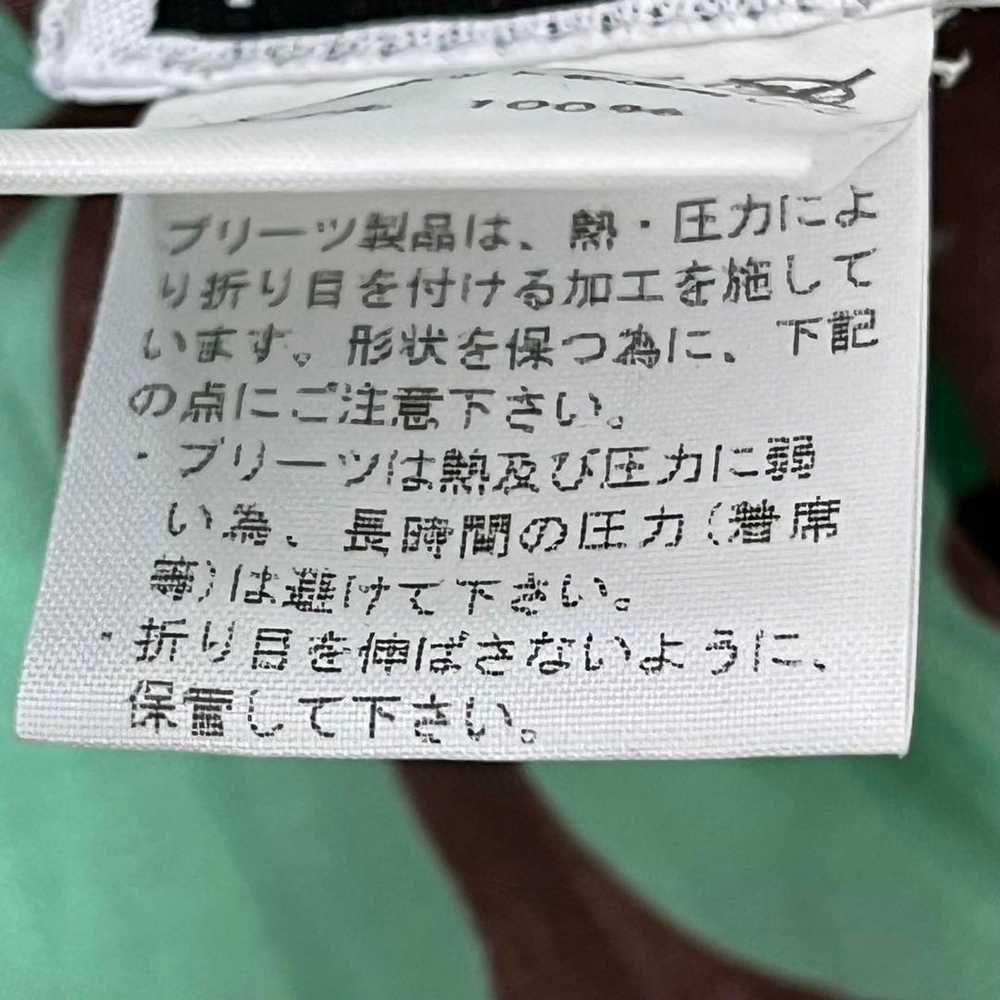 100%
プリーツ製品は、熱・圧力によ
り折り目を付ける加工を施して
います。形状を保つ為に、下記
の点にご注意下さい。
・プリーツは熱及び圧力に弱
い為、長時間の圧力(着席
等)は避けて下さい。
・折り目を伸ばさないように、
保管して下さい。